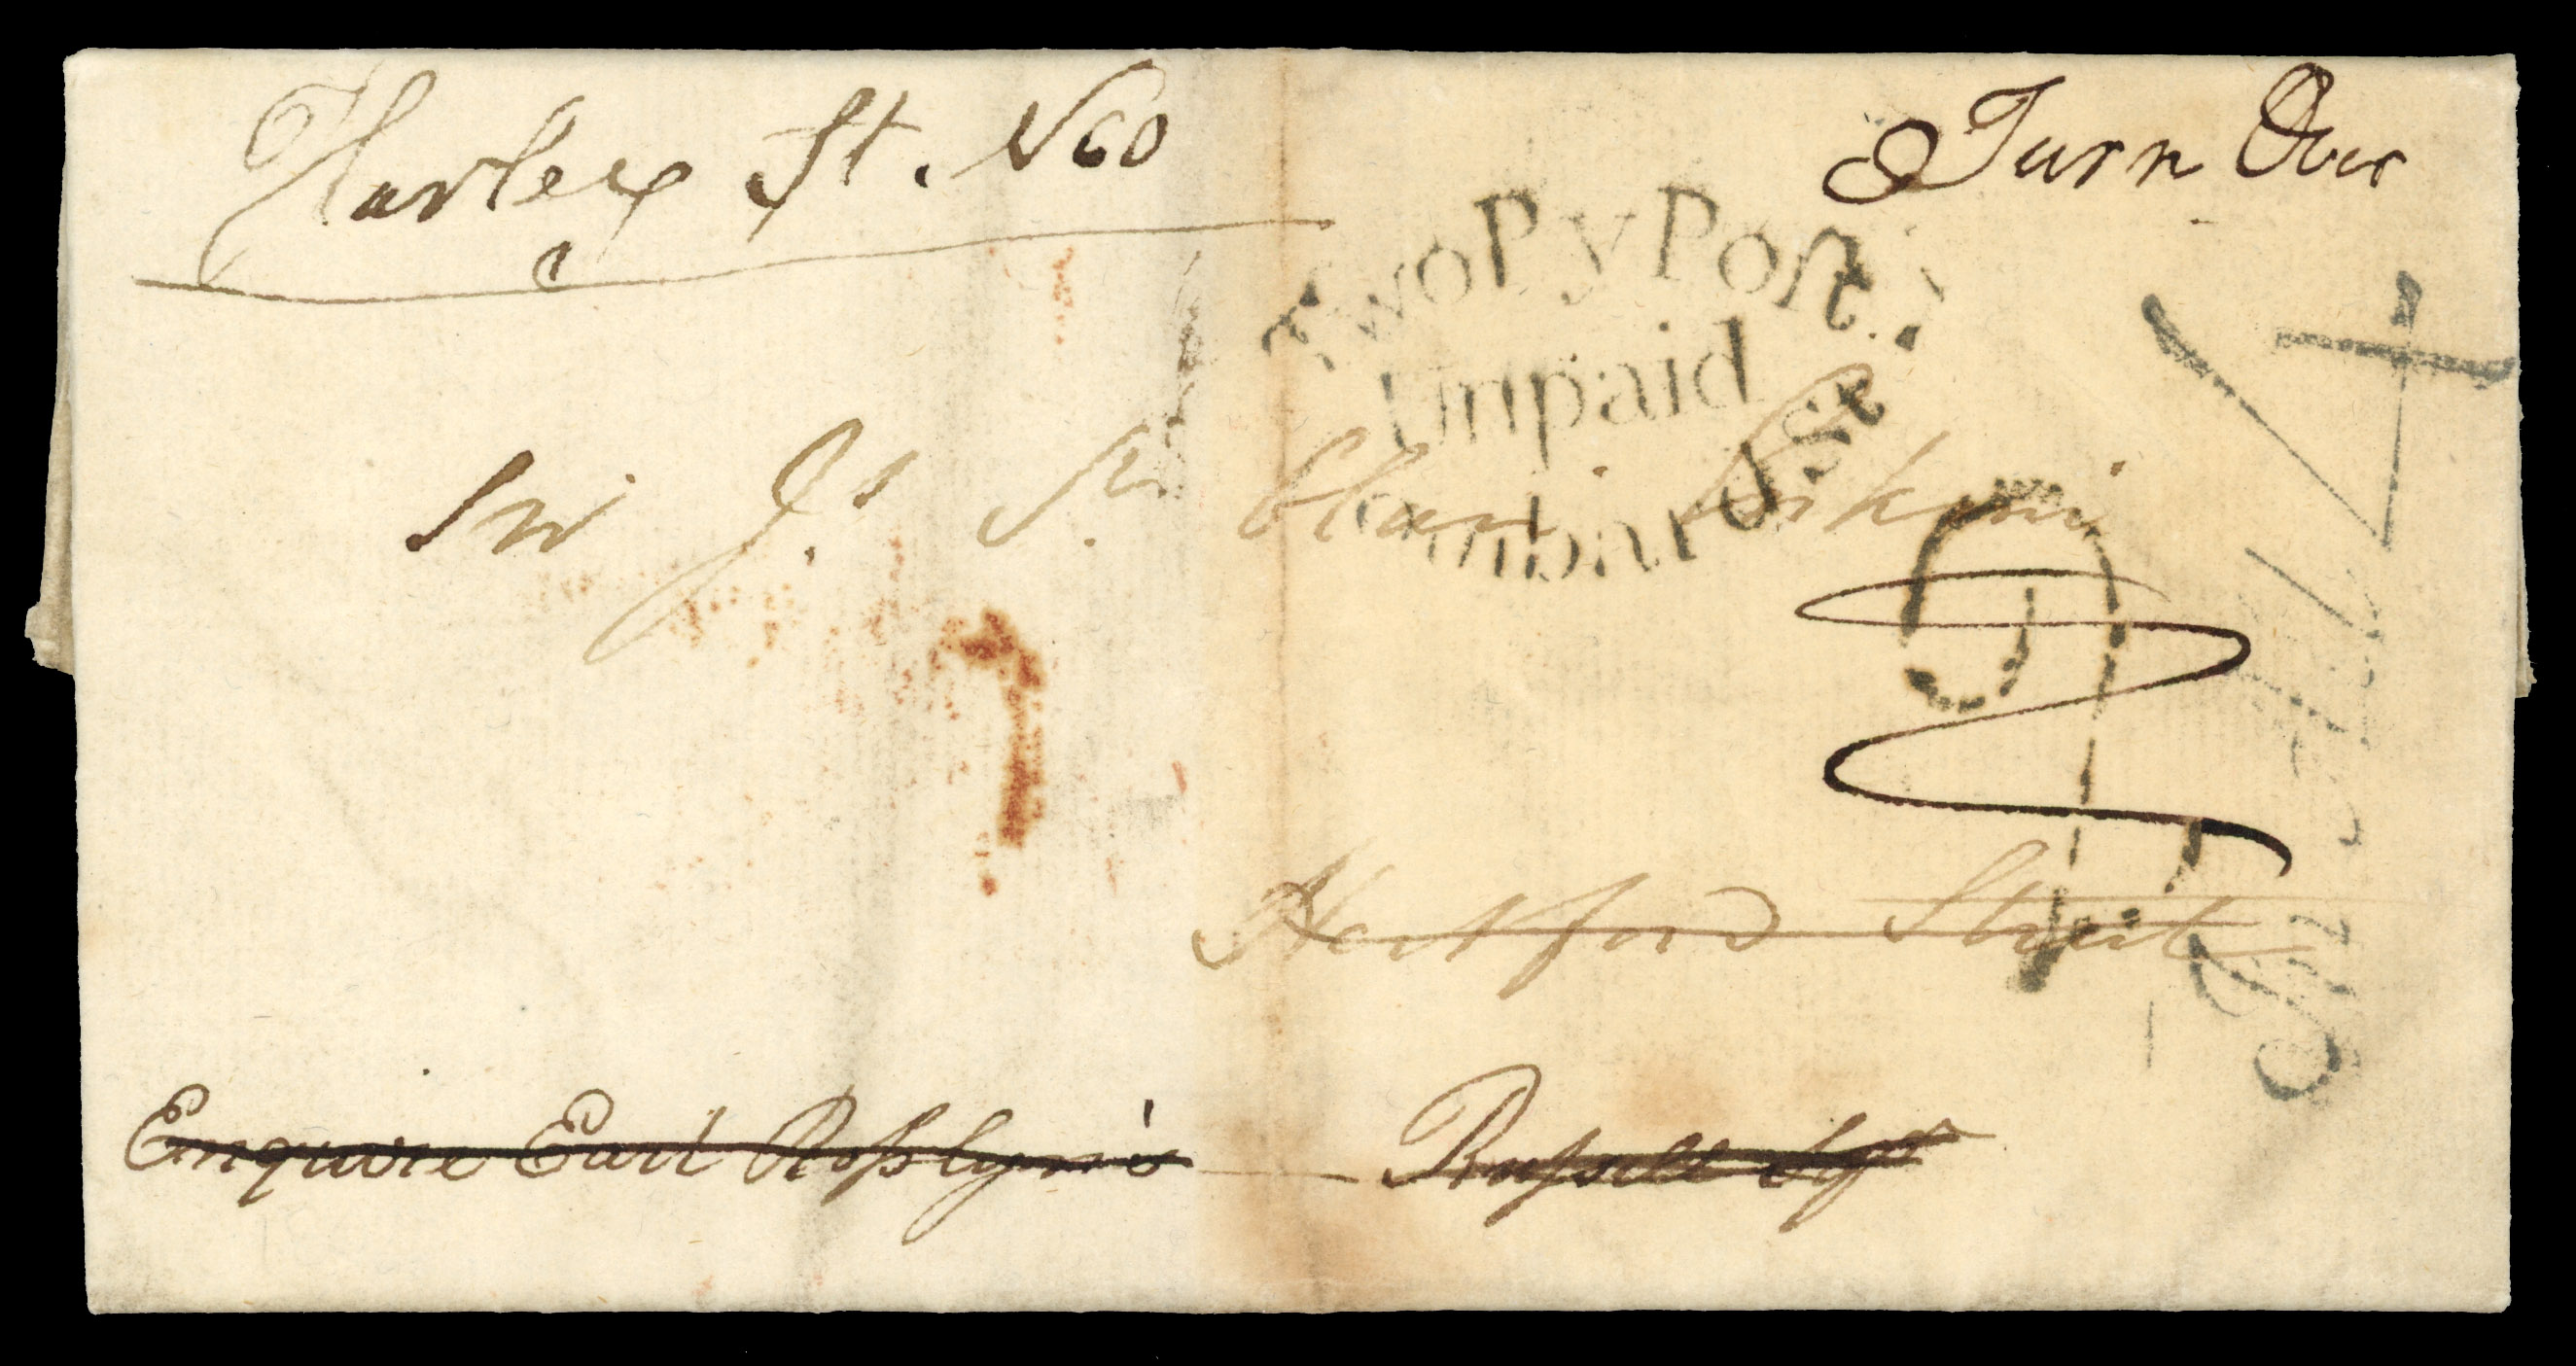 Harley St. N 60
Turn Over
Two Py Post
Unpaid
Lombard St
Sir Js. St. Clair Erskine
Hertford Street
Enquire Earl Rosslyn's — Russell Sqr
4